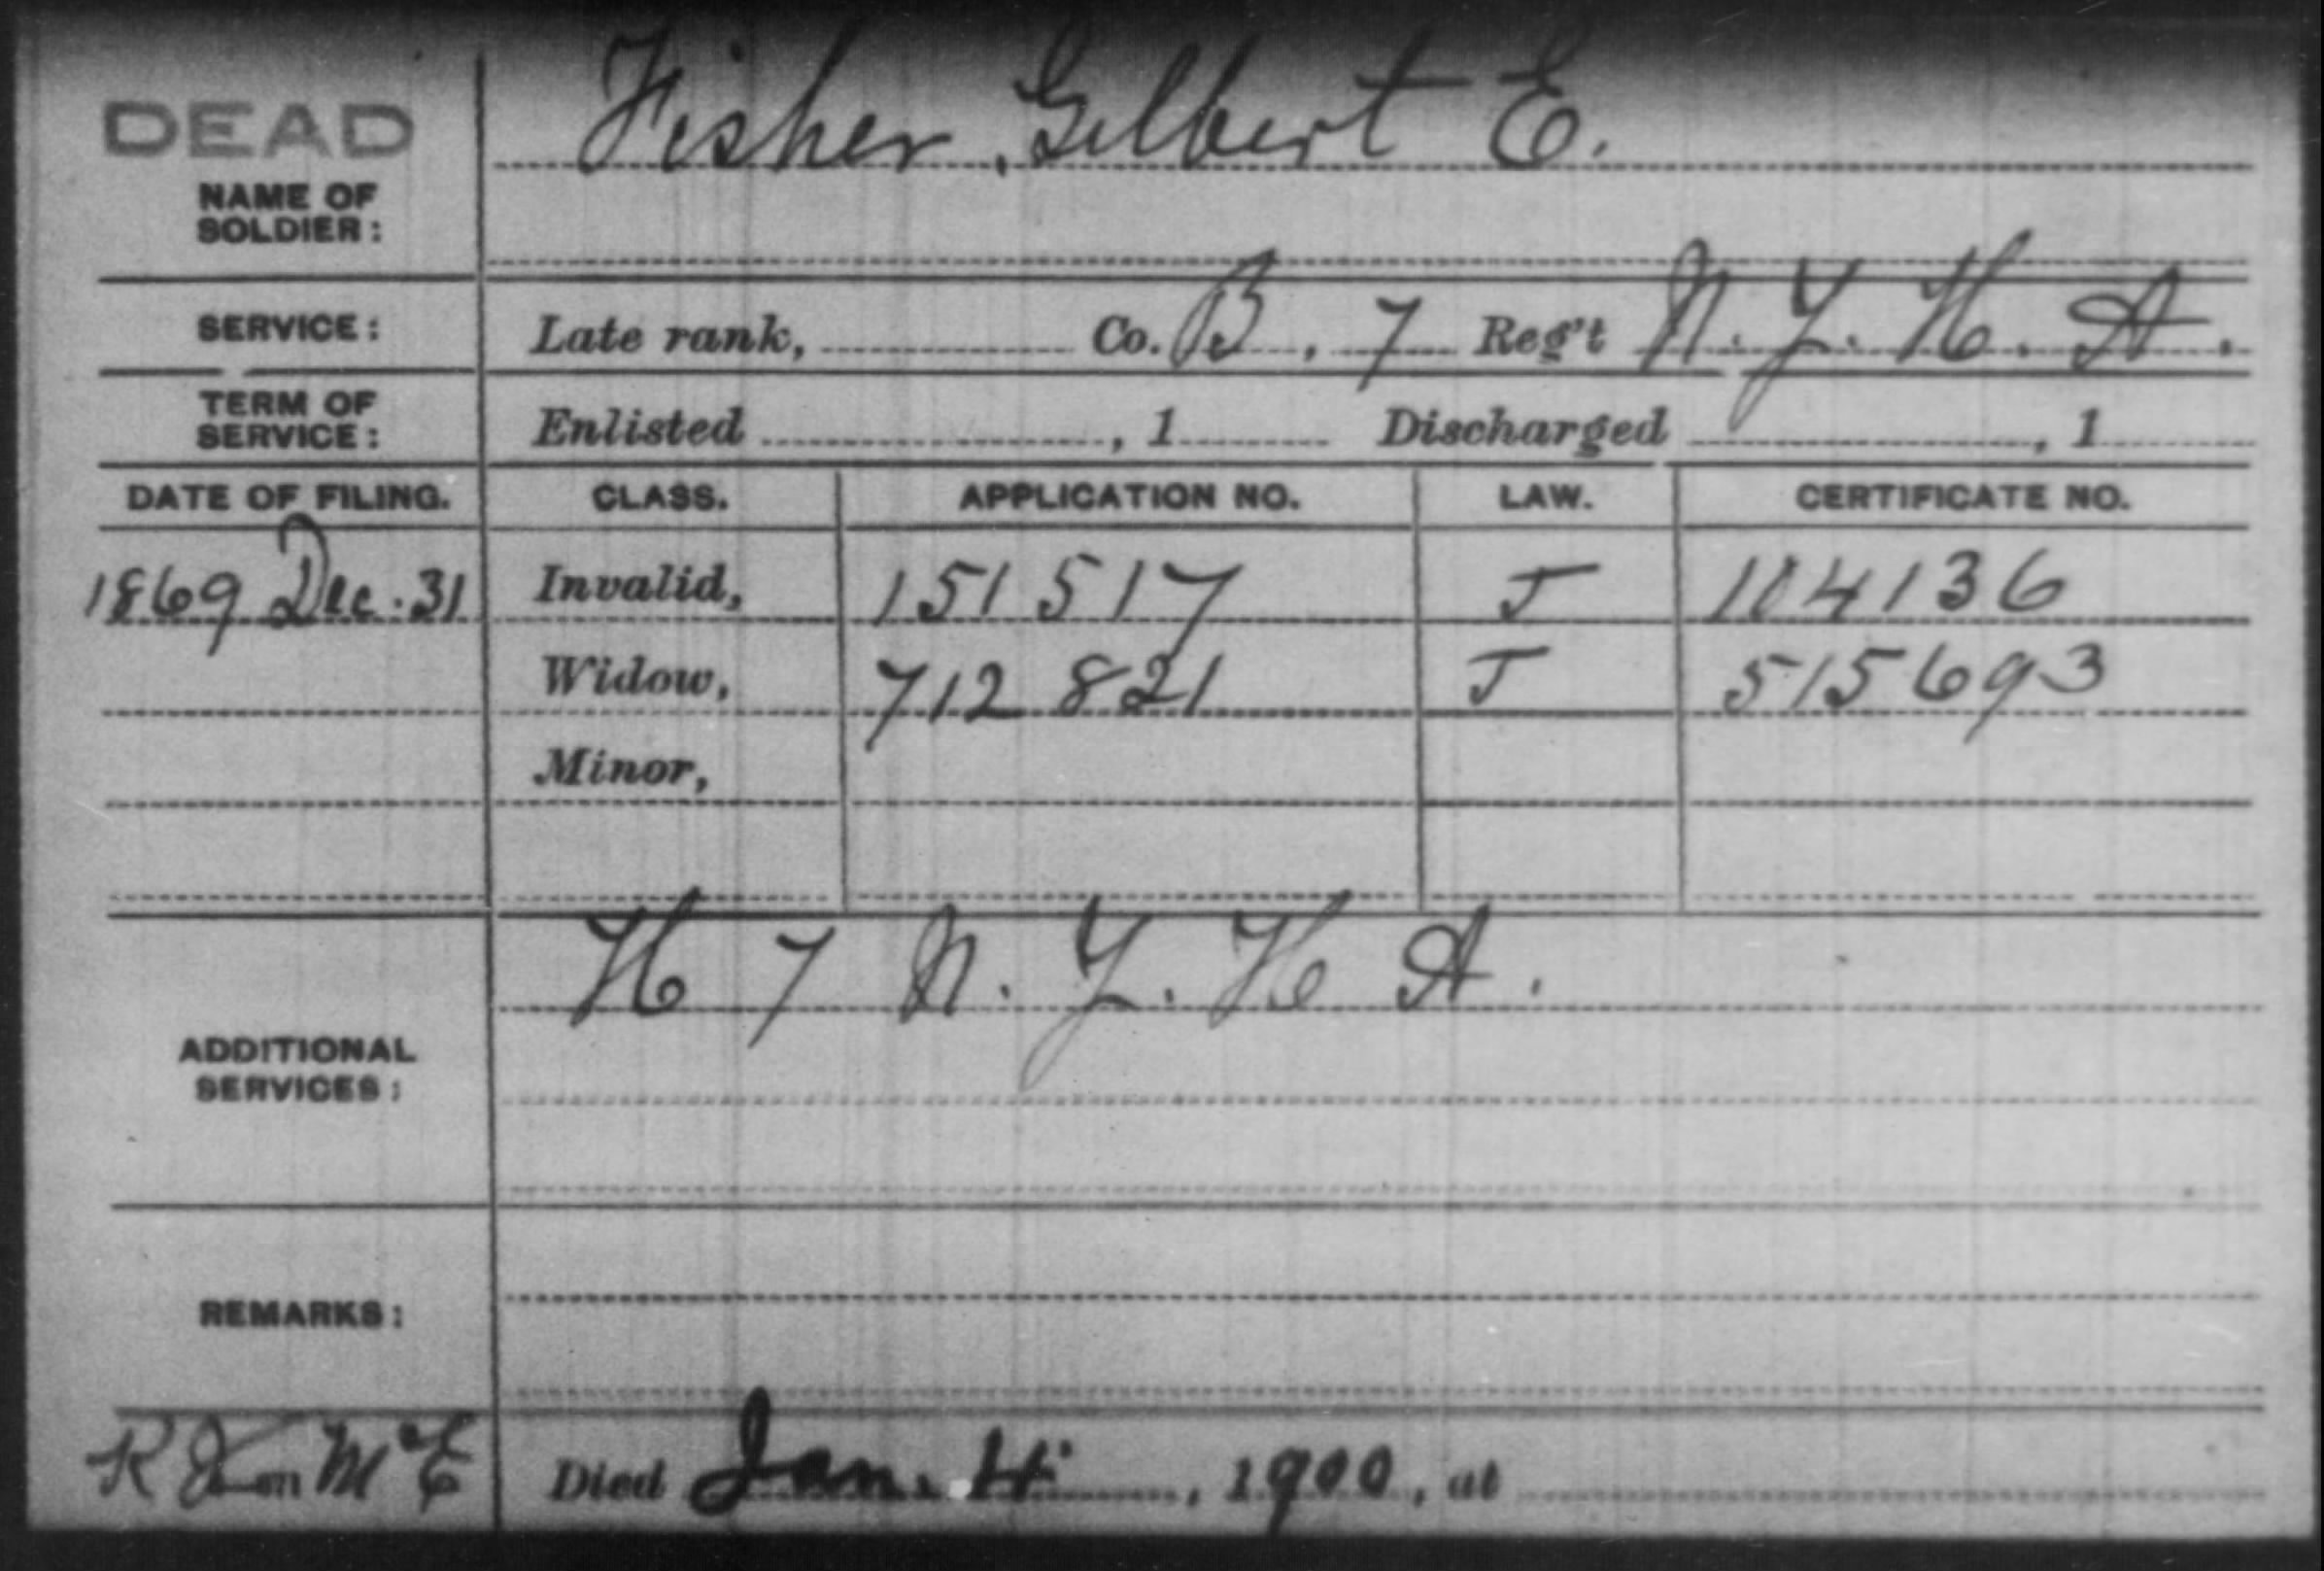 DEAD
Fisher, Gilbert E.
NAME OF
SOLDIER:
SERVICE: Late rank, Co. B, 7 Reg't N. Y. H. A.
TERM OF
SERVICE: Enlisted , 1 Discharged , 1
DATE OF FILING. CLASS. APPLICATION NO. LAW. CERTIFICATE NO.
1869 Dec. 31 Invalid, 151517 J 104136
Widow, 712821 J 515693
Minor,
H 7 N. Y. H A.
ADDITIONAL
SERVICES:
REMARKS:
Died Jan. 4, 1900, at